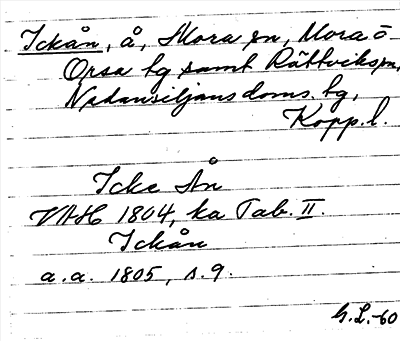 Ickån, å, Mora sn, Mora o
Orsa tg samt Rättviks sn,
Nedansiljans doms. tg,
Kopp. l.
Icke Ån
VAH 1804, ka Tab. II.
Ickån
a.a. 1805, s. 9.
G.L.-60